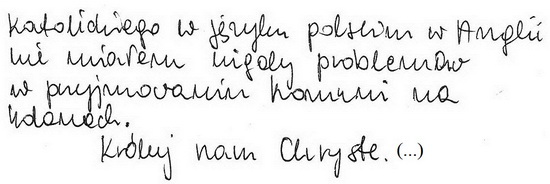 Katolickiego w języku polskim w Anglii
nie miałem nigdy problemów
w przyjmowaniu Komunii na
kolanach.
Króluj nam Chryste. (...)